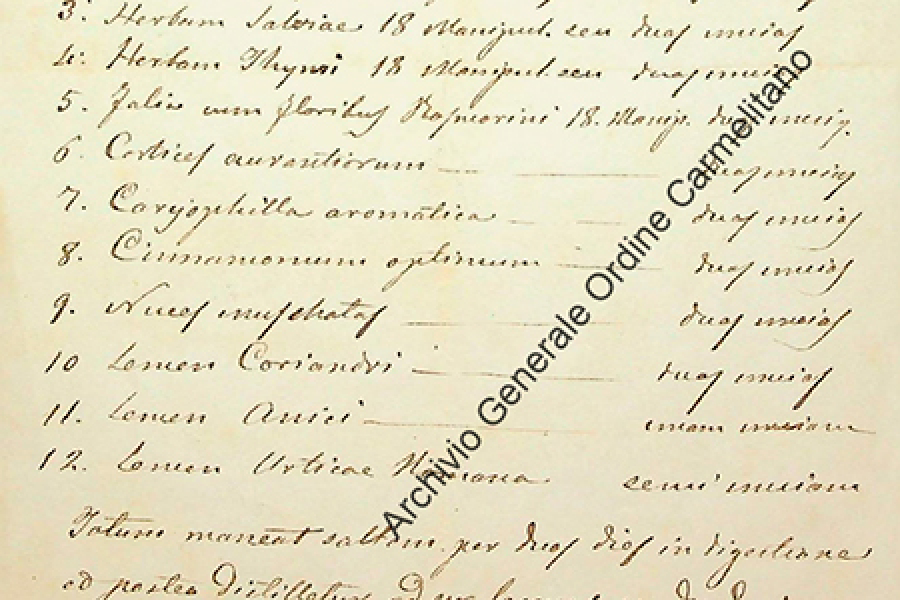 3. Herbam Salviae 18 Manipul. seu duas uncias
4. Herbam Thymi 18 Manipul. seu duas uncias
5. Folia cum floribus Rosmarini 18. Manip. duas uncias
6. Cortices aurantiorum duas uncias
7. Caryophilla aromatica duas uncias
8. Cinnamomum optimum duas uncias
9. Nuces muschatas duas uncias
10 Semen Coriandri duas uncias
11. Semen Anisi unam unciam
12. Semen Urticae semi unciam
Totum maneat saltem per duos dies in digestione
et postea distilletur
Archivio Generale Ordine Carmelitano